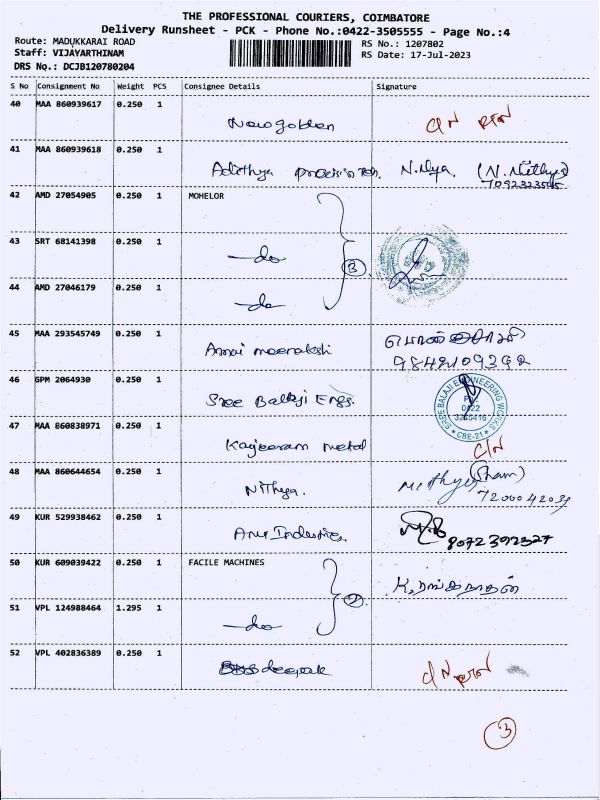 THE PROFESSIONAL COURIERS, COIMBATORE
Delivery Runsheet - PCK - Phone No.:0422-3505555 - Page No.:4
Route: MADUKKARAI ROAD
Staff: VIJAYARTHINAM
DRS No.: DCJB120780204
RS No.: 1207802
RS Date: 17-Jul-2023
S No Consignment No Weight PCS Consignee Details Signature
40 MAA 860939617 0.250 1
Newgolden
41 MAA 860939618 0.250 1
Adithya precision N.Nya. (N. Nithya)
42 AMD 27054905 0.250 1 MOHELOR
43 SRT 68141398 0.250 1
-do 3
44 AMD 27046179 0.250 1
-do
45 MAA 293545749 0.250 1
Annai meenakshi
9842109392
46 GPM 2064930 0.250 1
Sree Balaji Engg.
SREE BALAJI ENGINEERING WORKS
0422
CBE-21
47 MAA 860838971 0.250 1
metal C/N
48 MAA 860644654 0.250 1
Nithya. Nithya (Sham)
49 KUR 529938462 0.250 1
Anu Industries. 8072392327
50 KUR 609039422 0.250 1 FACILE MACHINES
K. ரங்கநாதன்
51 VPL 124988464 1.295 1
-do 2
52 VPL 402836389 0.250 1
deepak
3